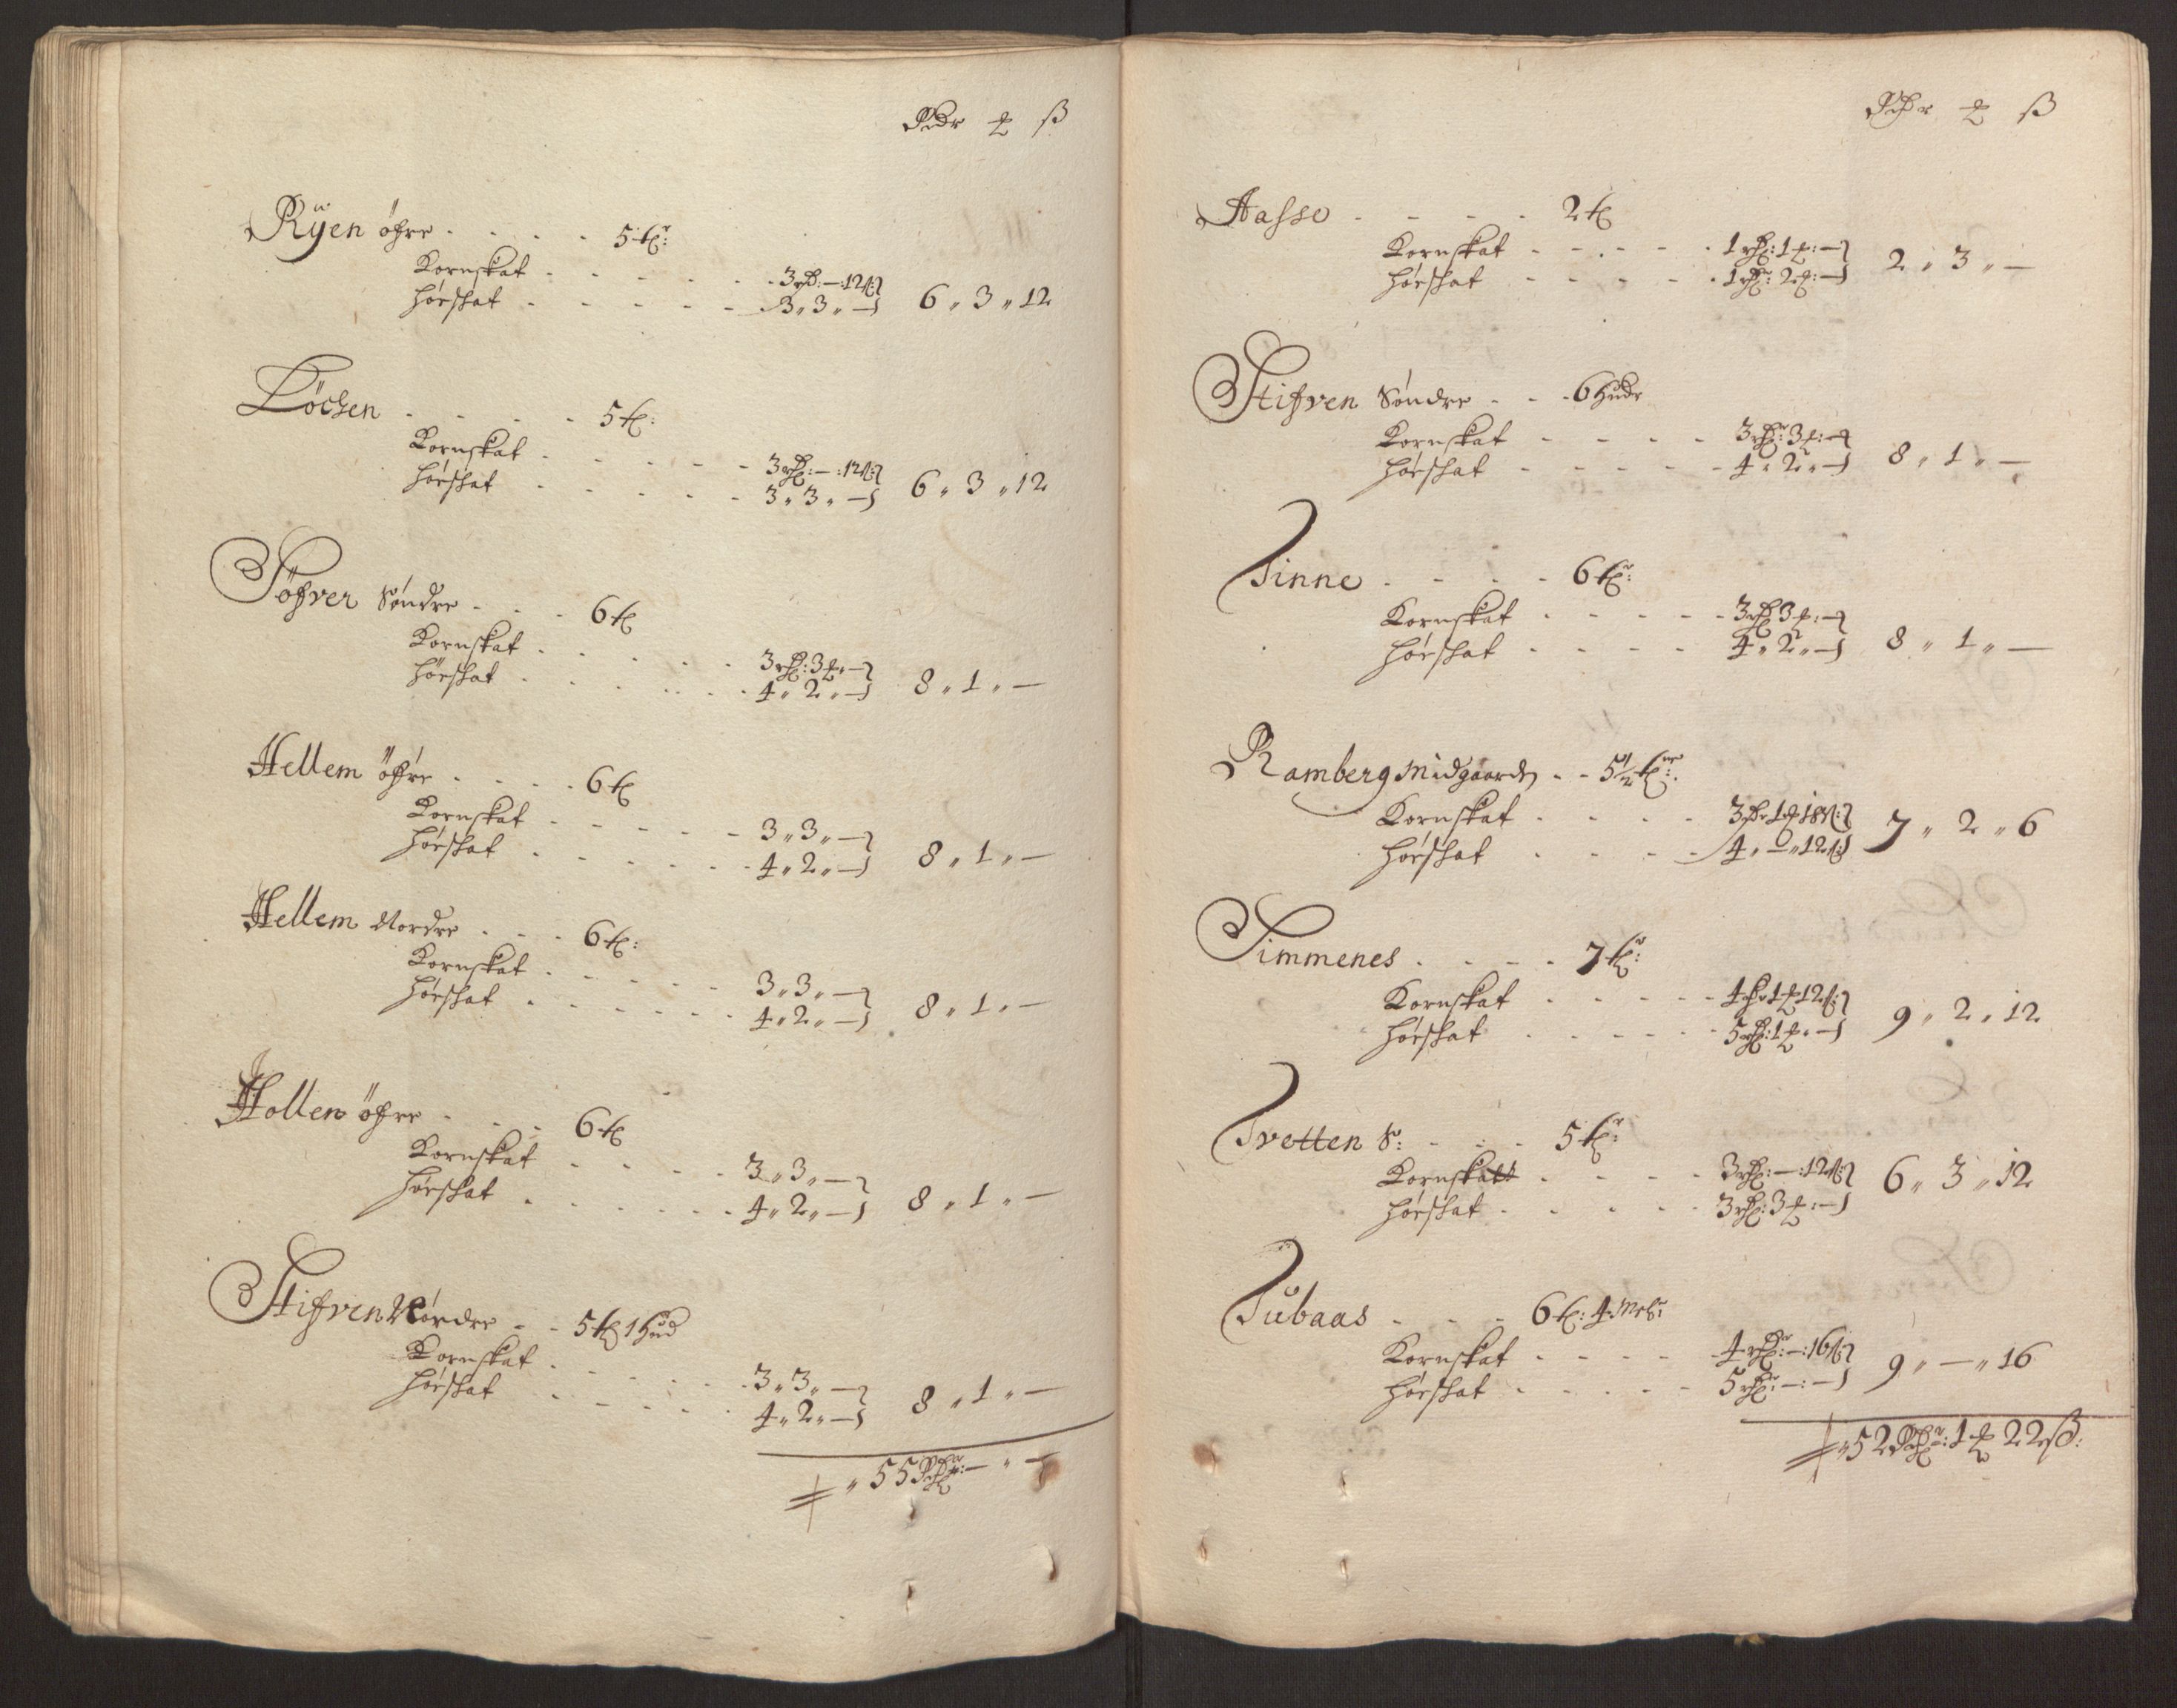 Rdr ℔ ß
Rÿen öfre . . . . 5 tlr:
Kornskat . . . . . . 3 rdr: — : 12 ß:
Hörskat . . . . . 3 „ 3 „ — 6 „ 3 „ 12
Löchen . . . . 5 tl:
Kornskat . . . . . 3 rdr: — : 12 ß:
Hörskat . . . . . 3 „ 3 „ — 6 „ 3 „ 12
Töfver Söndre . . . 6 tl
Kornskat . . . . . 3 rdr: 3 ℔ „ —
Hörskat . . . . . . 4 „ 2 „ — 8 „ 1 „ —
Hellem öfre . . . . 6 tl
Kornskat . . . . . 3 „ 3 „ —
Hörskat . . . . . . 4 „ 2 „ — 8 „ 1 „ —
Hellem Nordre . . . 6 tl:
Kornskat . . . . . 3 „ 3 „ —
Hörskat . . . . . . 4 „ 2 „ — 8 „ 1 „ —
Hollen öfre . . . 6 tl
Kornskat . . . . 3 „ 3 „ —
Hörskat . . . . . . 4 „ 2 „ — 8 „ 1 „ —
Stifven Nördre - - 5 tl 1 Hud
Kornskat . . . . . . 3 „ 3 „ —
Hörskat . . . . . 4 „ 2 „ — 8 „ 1 „ —
„ 55 Rdr: — „ —
Rdr ℔ ß
Aasse . - - . 2 tl
Kornskat - - . - - . 1 rdr: 1 ℔: —
Hörskat - - - - . 1 rdr: 2 ℔: — 2 „ 3 „ —
Stifven Söndre - - - 6 Hudr
Kornskat - - - - 3 rdr: 3 ℔: —
Hörskat - - - - - 4 „ 2 „ — 8 „ 1 „ —
Tinne . - - . - 6 tlr:
Kornskat . - - - - 3 rdr 3 ℔: —
Hörskat - - - - 4 „ 2 „ — 8 „ 1 „ —
Ramberg Midgaarden - - 5 1/2 tlr:
Kornskat . - - - 3 dr 1 ℔ 18 ß:
Hörskat - - - - 4 „ — „ 12 ß 7 „ 2 „ 6
Simmenes . - - - 7 tlr:
Kornskat - - - - - 4 dr 1 ℔ 12 ß:
Hörskat . - - - - 5 rdr: 1 ℔ „ — 9 „ 2 „ 12
Tvetten S: - - - 5 tlr:
Kornskatt . - - - 3 rdr: — : 12 ß:
Hörskat - - - - 3 rdr: 3 ℔: — 6 „ 3 „ 12
Tubaas - - - 6 tl: 4 Melr
Kornskat - - - - 4 rdr: — : 16 ß
Hörskat - - - - - 5 rdr: — : — 9 „ — „ 16
„ 52 Rdr: 1 ℔ 22 ß: